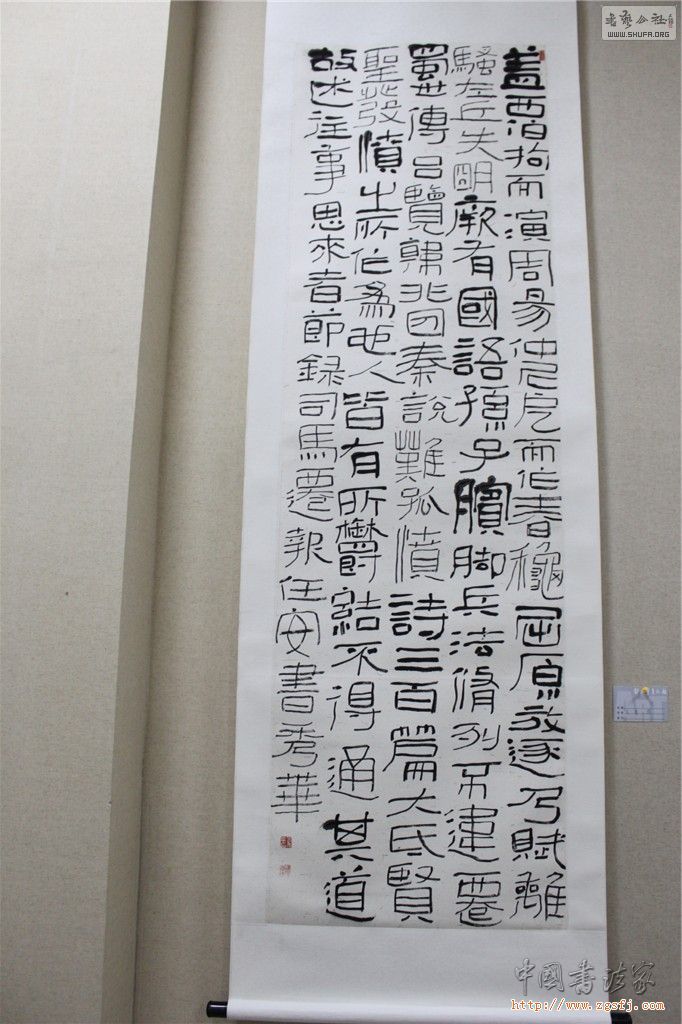 蓋西伯拘而演周易仲尼戹而作春穐屈原放逐乃賦離
騷左丘失明厥有國語孫子臏脚兵法脩列不韋遷
蜀世傳吕覽韓非囚秦説難孤憤詩三百篇大氐賢
聖發憤之所作爲也人皆有所鬱結不得通其道
故述往事思來者節録司馬遷報任安書秀華
書藝公社
WWW.SHUFA.ORG
中國書法家
http://www.zgsfj.com